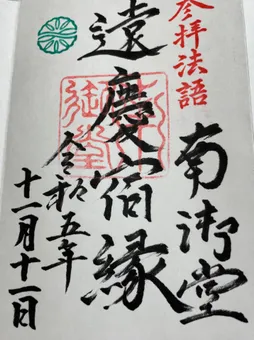 参拝法語
南御堂
遠慶宿縁
令和五年
十一月十一日